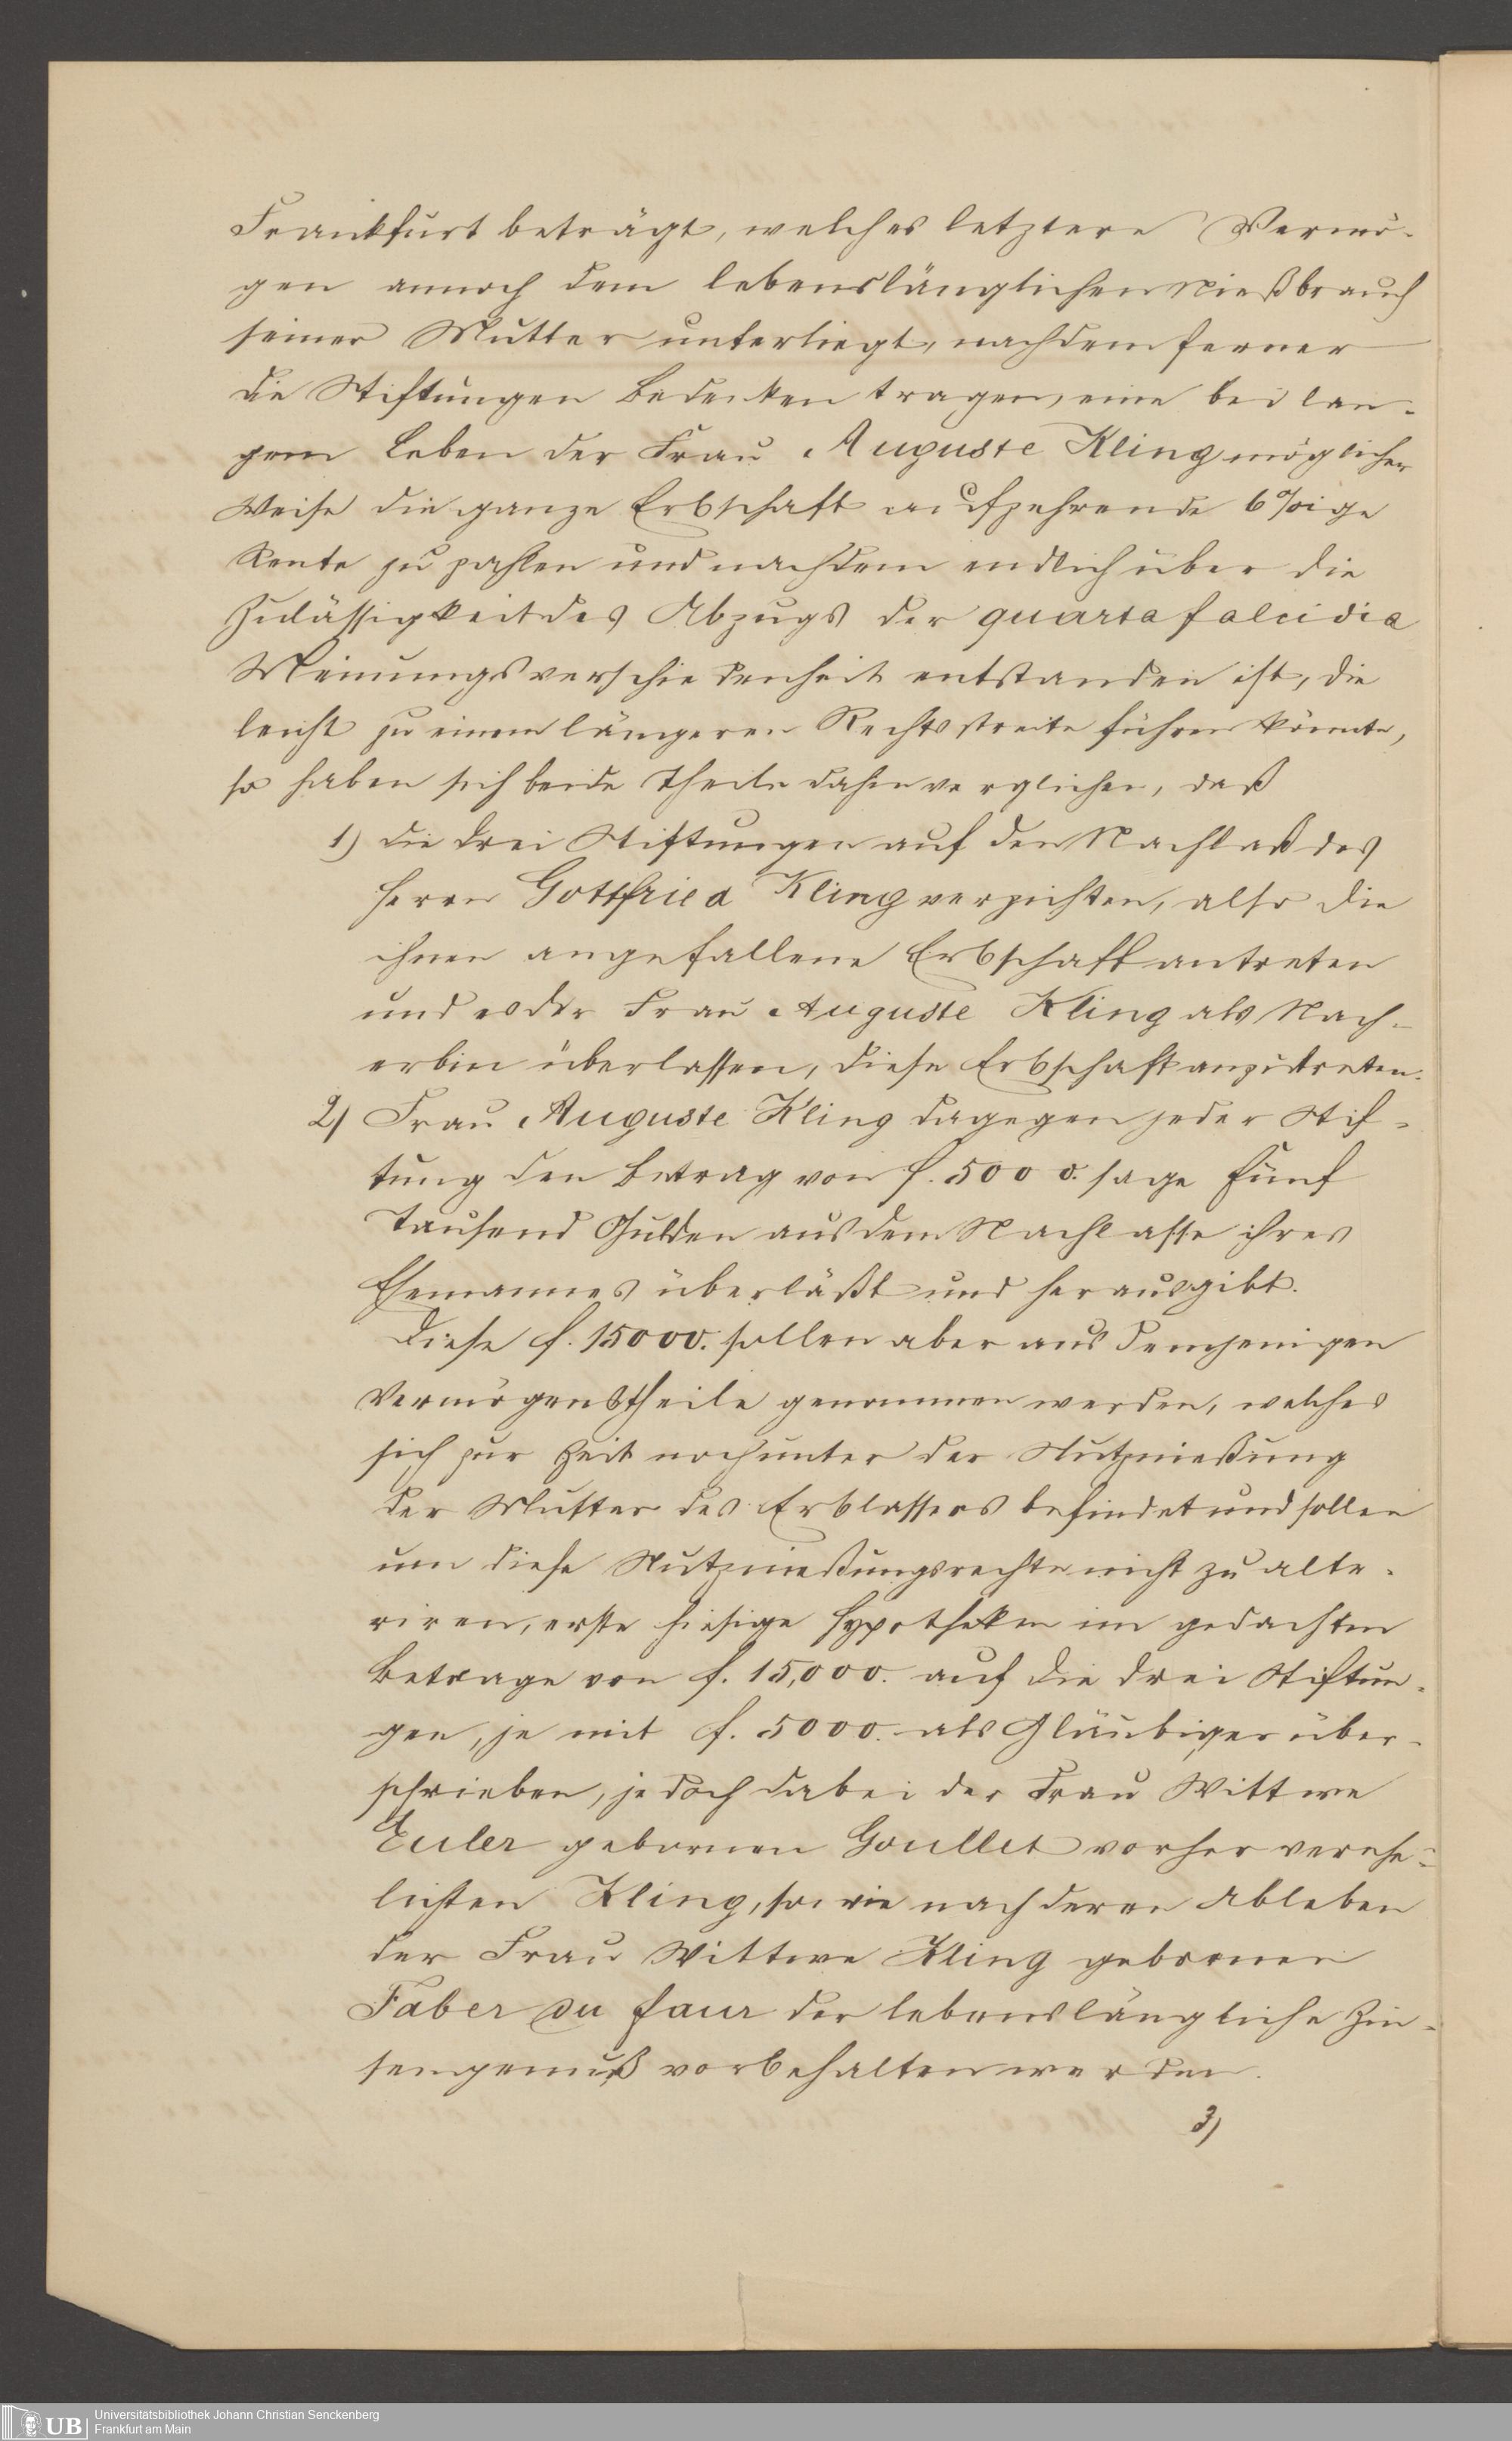 Frankfurt beträgt, welches letztere Vermö-
gen annoch dem lebenslänglichen Nießbrauch
seiner Mutter unterliegt, nachdem ferner
die Stiftungen Bedenken tragen, eine bei lan-
gem Leben der Frau Auguste Kling möglicher
Weise die ganze Erbschaft aufzehrende 6%ige
Rente zu zahlen und nachdem endlich über die
Zulässigkeit des Abzugs der quarta falcidia
Meinungsverschiedenheit entstanden ist, die
leicht zu einem längeren Rechtsstreite führen könnte,
so haben sich beide Theile dahin verglichen, daß
1) die drei Stiftungen auf den Nachlaß des
Herrn Gottfried Kling verzichten, also die
ihnen angefallene Erbschaft antreten
und es der Frau Auguste Kling als Nach-
erbin überlassen, diese Erbschaft anzutreten.
2) Frau Auguste Kling dagegen jeder Stif-
tung den Betrag von f. 5000. sage Fünf
Tausend Gulden aus dem Nachlasse ihres
Ehemannes überläßt und herausgibt.
Diese f. 15000. sollen aber aus demjenigen
Vermögenstheile genommen werden, welches
sich zur Zeit noch unter der Nutznießung
der Mutter des Erblassers befindet und sollen
um diese Nutznießungsrechte nicht zu alte-
riren, erste hiesige Hypotheken im gedachten
Betrage von f. 15,000. auf die drei Stiftun-
gen, je mit f. 5000. als Gläubiger über-
schrieben, jedoch dabei der Frau Wittwe
Euler gebornen Goullet vorher verehe-
lichten Kling, sowie nach deren Ableben
der Frau Wittwe Kling geborenen
Faber du Faur der lebenslängliche Zin-
sengenuß vorbehalten werden.
3)
UB Universitätsbibliothek Johann Christian Senckenberg
Frankfurt am Main